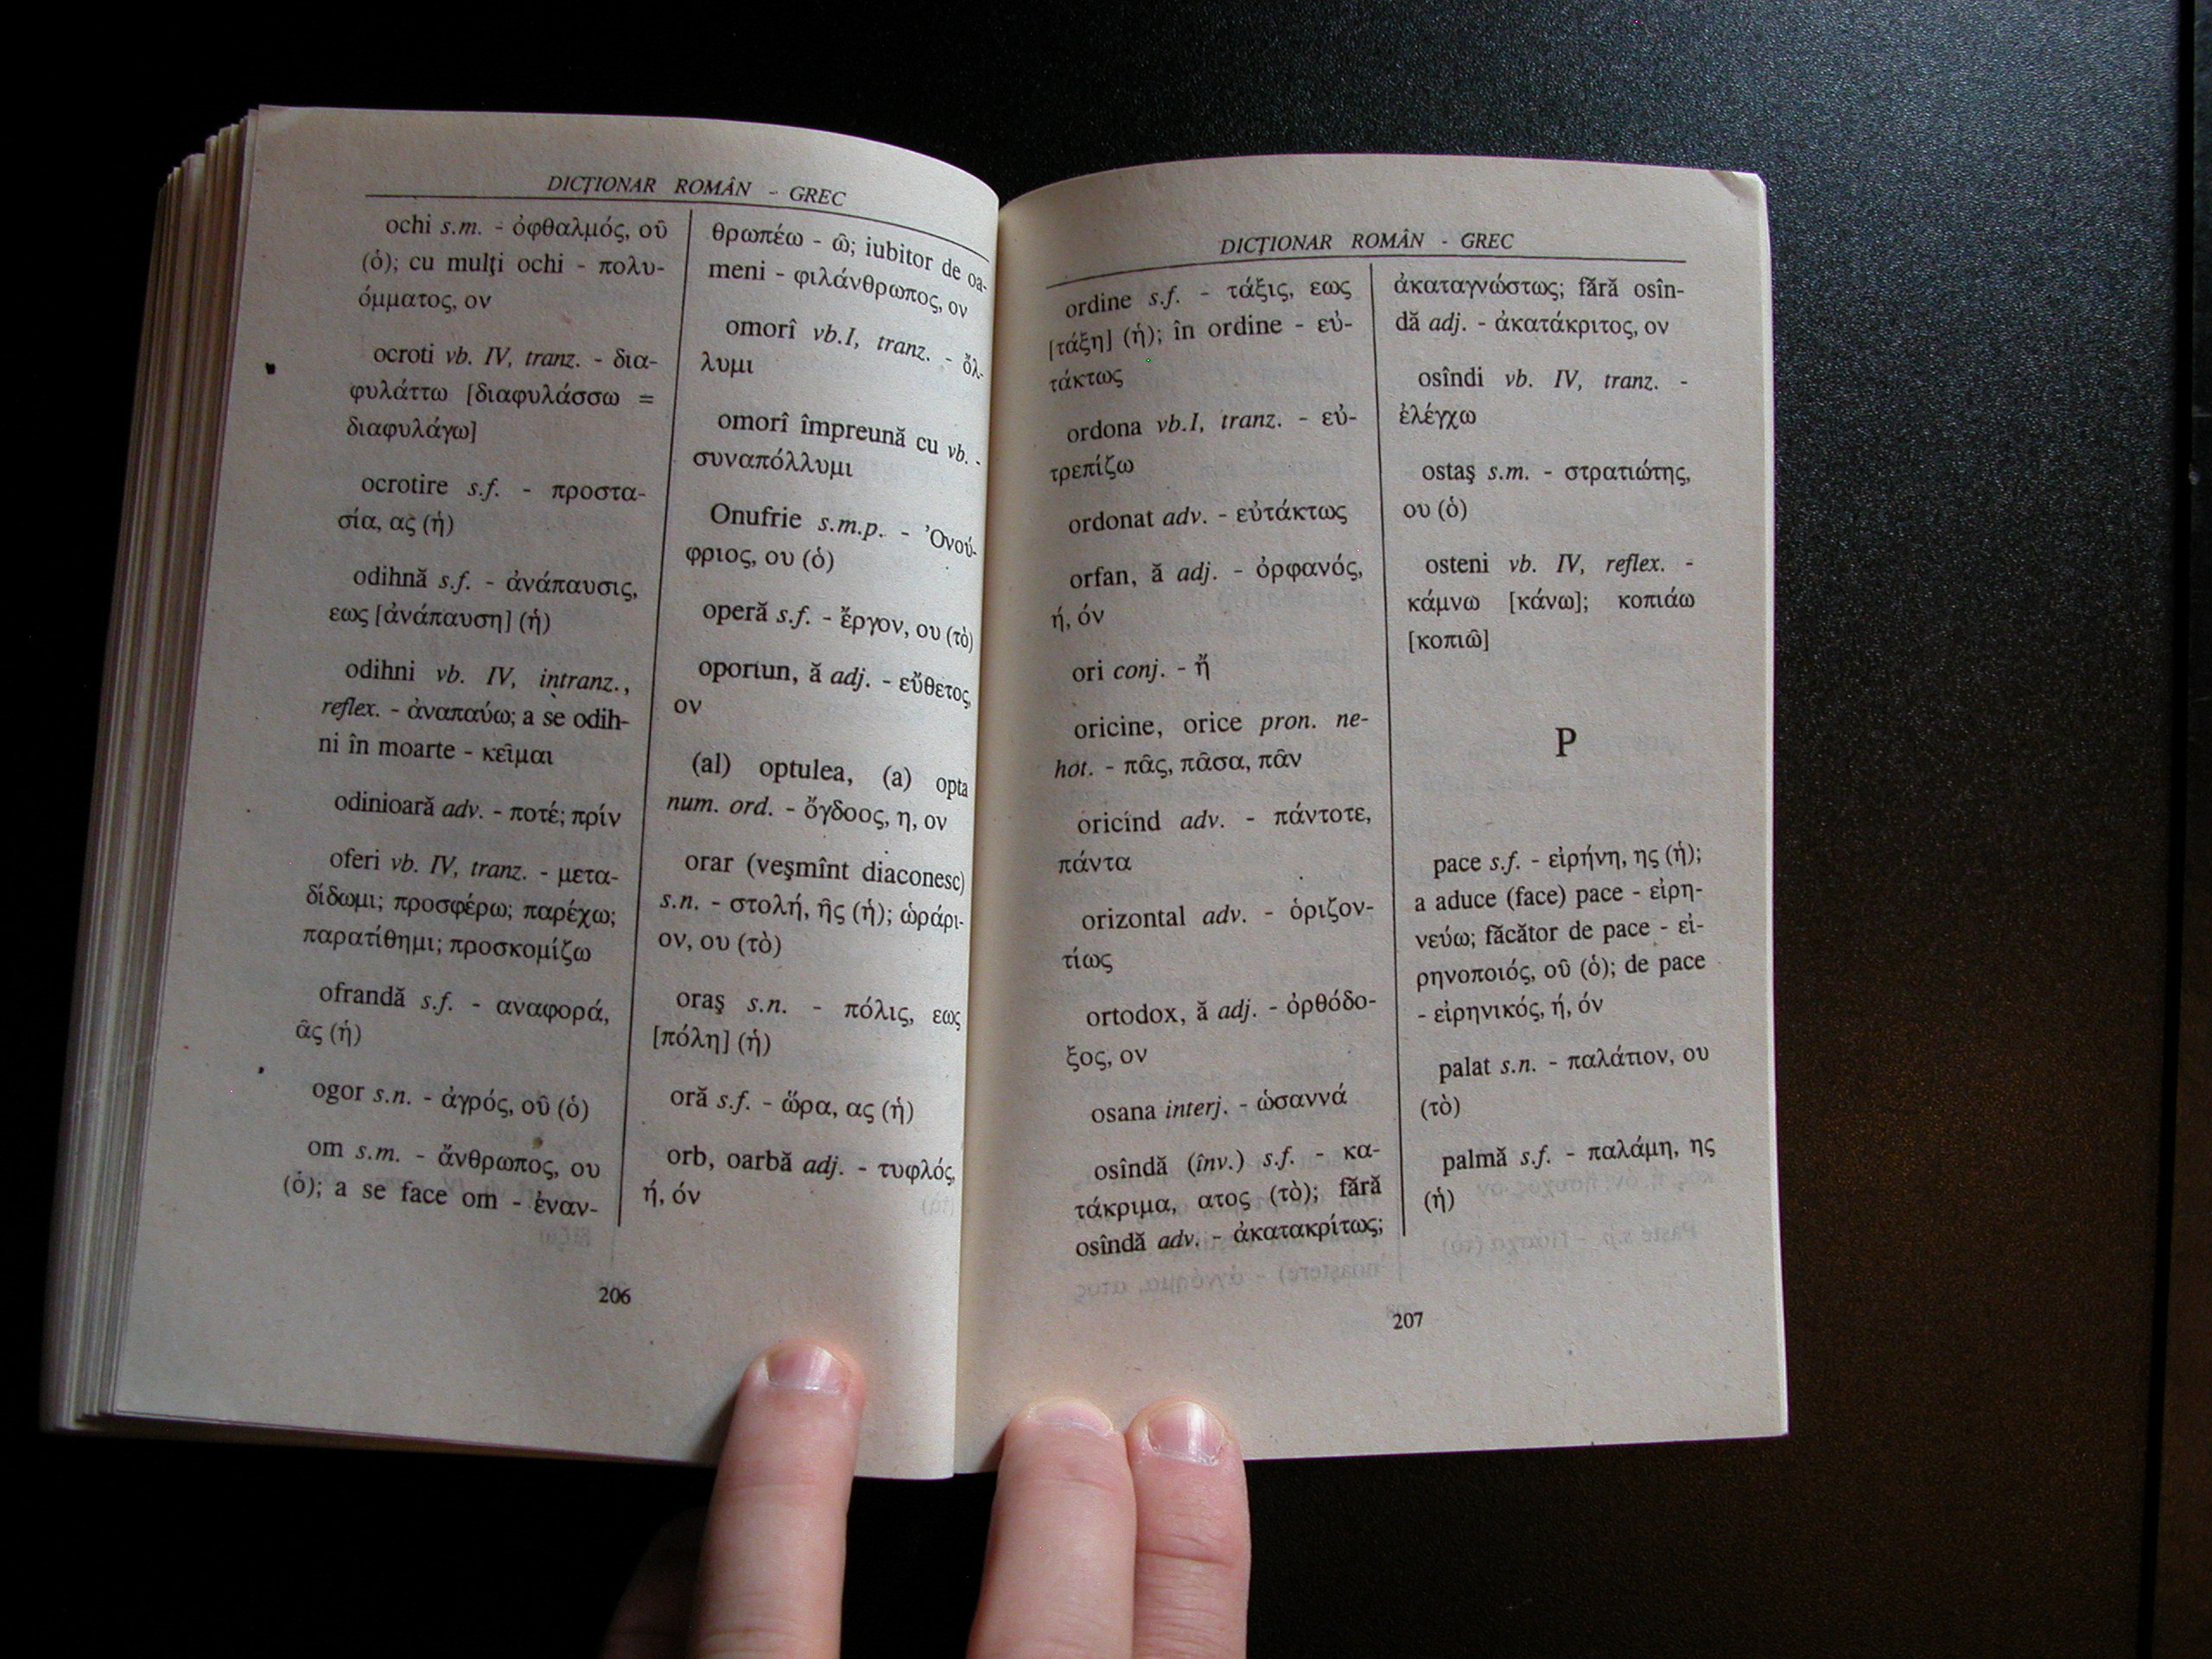 DICŢIONAR ROMÂN - GREC
ochi s.m. - ὀφθαλμός, οῦ
(ὁ); cu mulţi ochi - πολυ-
όμματος, ον
ocroti vb. IV, tranz. - δια-
φυλάττω [διαφυλάσσω =
διαφυλάγω]
ocrotire s.f. - προστα-
σία, ας (ἡ)
odihnă s.f. - ἀνάπαυσις,
εως [ἀνάπαυση] (ἡ)
odihni vb. IV, intranz.,
reflex. - ἀναπαύω; a se odih-
ni în moarte - κεῖμαι
odinioară adv. - ποτέ; πρίν
oferi vb. IV, tranz. - μετα-
δίδωμι; προσφέρω; παρέχω;
παρατίθημι; προσκομίζω
ofrandă s.f. - αναφορά,
ᾶς (ἡ)
ogor s.n. - ἀγρός, οῦ (ὁ)
om s.m. - ἄνθρωπος, ου
(ὁ); a se face om - ἐναν-
θρωπέω - ῶ; iubitor de oa-
meni - φιλάνθρωπος, ον
omorî vb.I, tranz. - ὄλ-
λυμι
omorî împreună cu vb. -
συναπόλλυμι
Onufrie s.m.p. - Ὀνού-
φριος, ου (ὁ)
operă s.f. - ἔργον, ου (τὸ)
oportun, ă adj. - εὔθετος,
ον
(al) optulea, (a) opta
num. ord. - ὄγδοος, η, ον
orar (veşmînt diaconesc)
s.n. - στολή, ῆς (ἡ); ὡράρι-
ον, ου (τὸ)
oraş s.n. - πόλις, εως
[πόλη] (ἡ)
oră s.f. - ὥρα, ας (ἡ)
orb, oarbă adj. - τυφλός,
ή, όν
206
DICŢIONAR ROMÂN - GREC
ordine s.f. - τάξις, εως
[τάξη] (ἡ); în ordine - εὐ-
τάκτως
ordona vb.I, tranz. - εὐ-
τρεπίζω
ordonat adv. - εὐτάκτως
orfan, ă adj. - ὀρφανός,
ή, όν
ori conj. - ἤ
oricine, orice pron. ne-
hot. - πᾶς, πᾶσα, πᾶν
oricînd adv. - πάντοτε,
πάντα
orizontal adv. - ὁριζον-
τίως
ortodox, ă adj. - ὀρθόδο-
ξος, ον
osana interj. - ὡσαννά
osîndă (înv.) s.f. - κα-
τάκριμα, ατος (τὸ); fără
osîndă adv. - ἀκατακρίτως;
ἀκαταγνώστως; fără osîn-
dă adj. - ἀκατάκριτος, ον
osîndi vb. IV, tranz. -
ἐλέγχω
ostaş s.m. - στρατιώτης,
ου (ὁ)
osteni vb. IV, reflex. -
κάμνω [κάνω]; κοπιάω
[κοπιῶ]
P
pace s.f. - εἰρήνη, ης (ἡ);
a aduce (face) pace - εἰρη-
νεύω; făcător de pace - εἰ-
ρηνοποιός, οῦ (ὁ); de pace
- εἰρηνικός, ή, όν
palat s.n. - παλάτιον, ου
(τὸ)
palmă s.f. - παλάμη, ης
(ἡ)
207